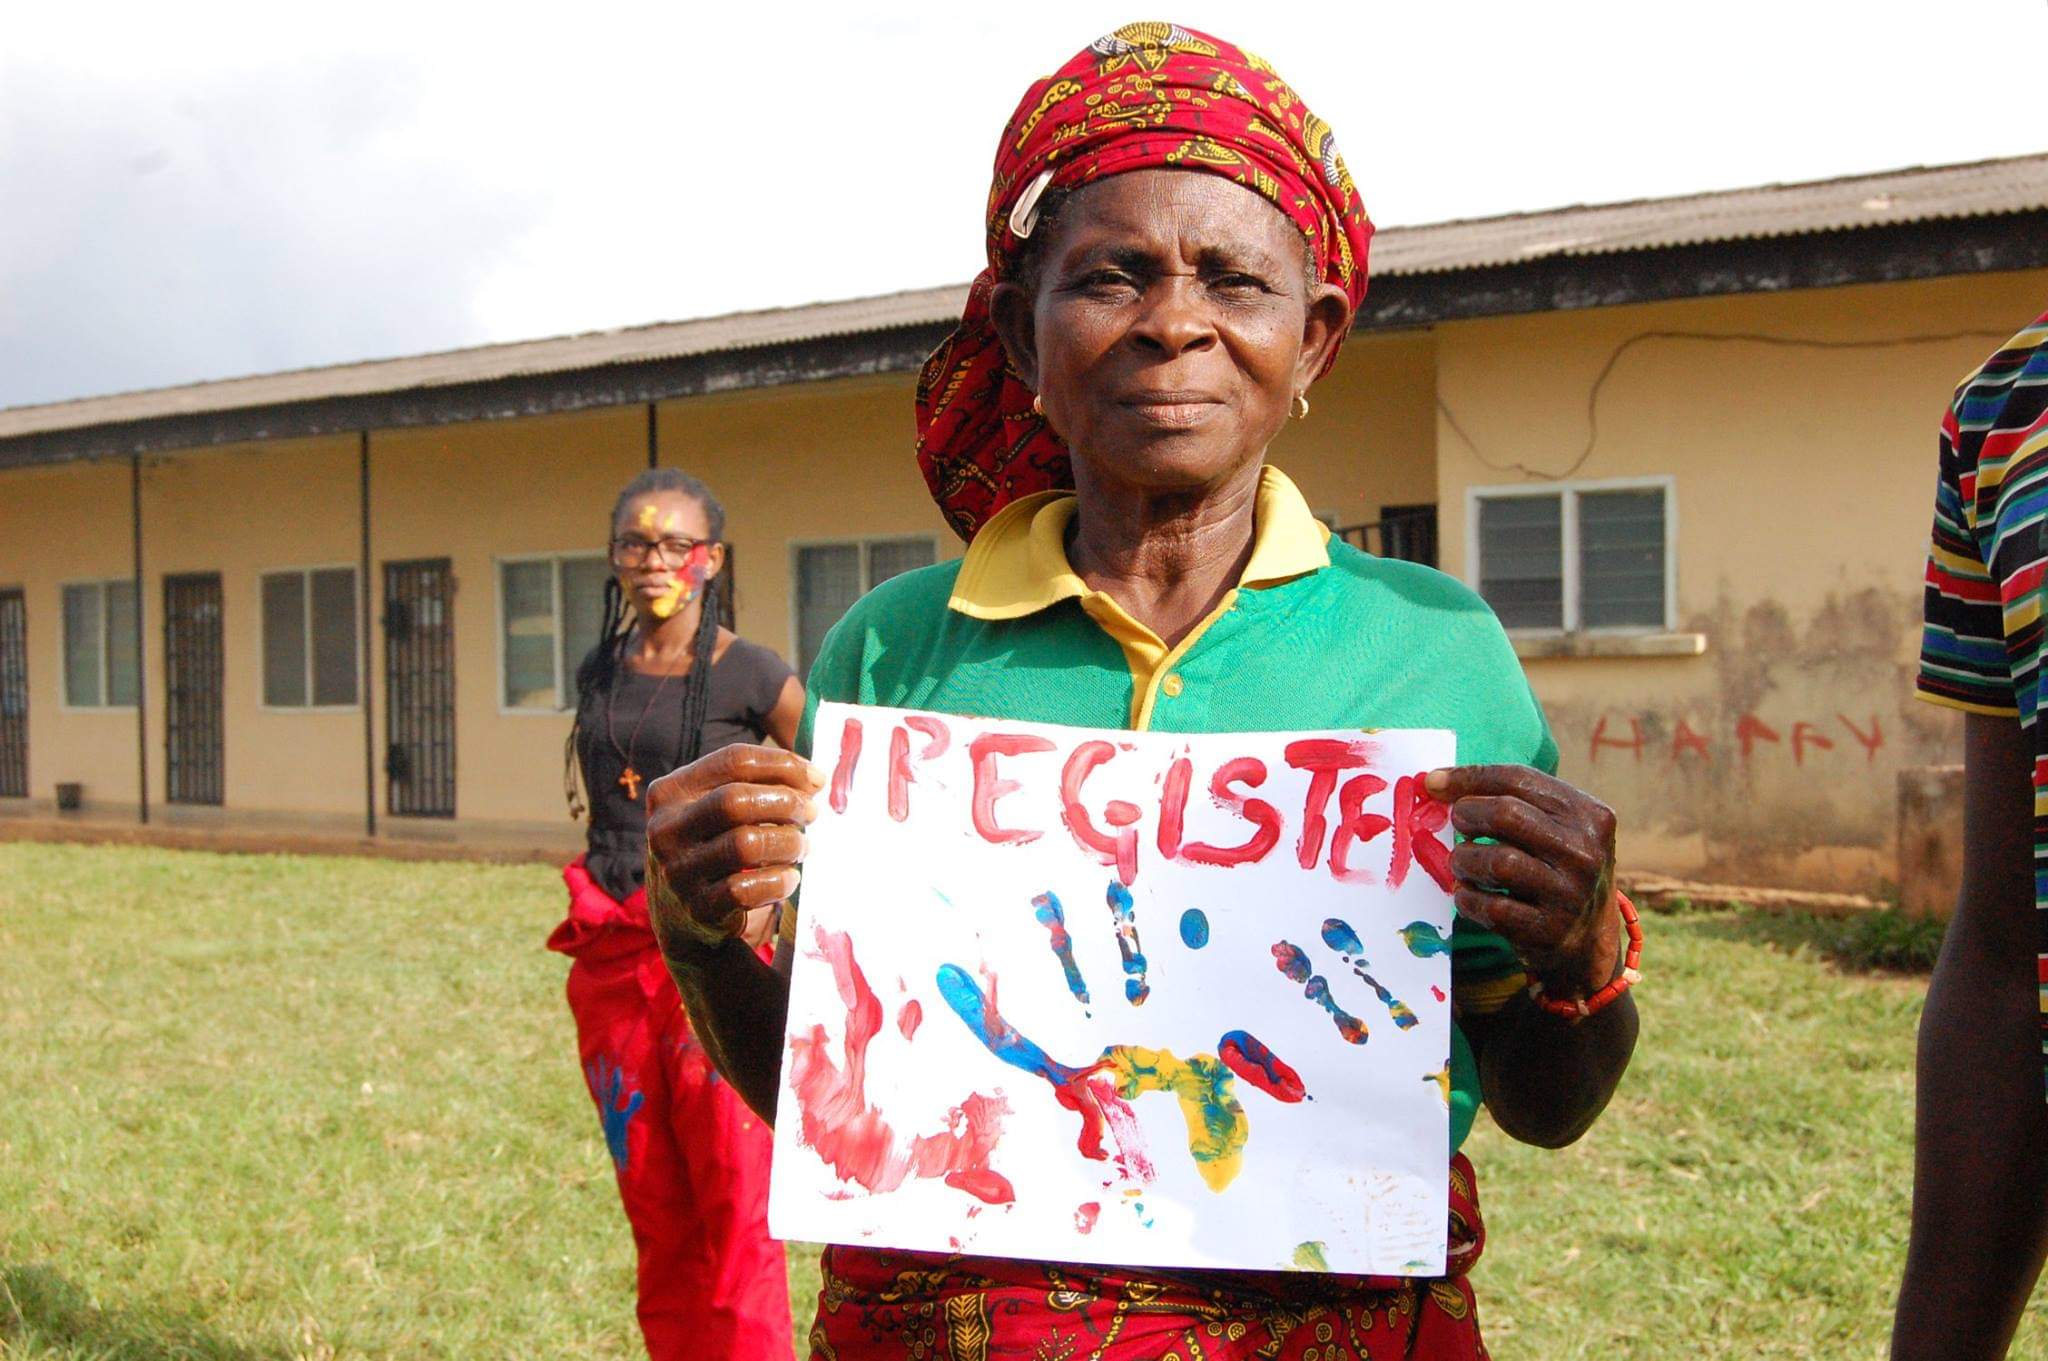 I REGISTER
HAPPY